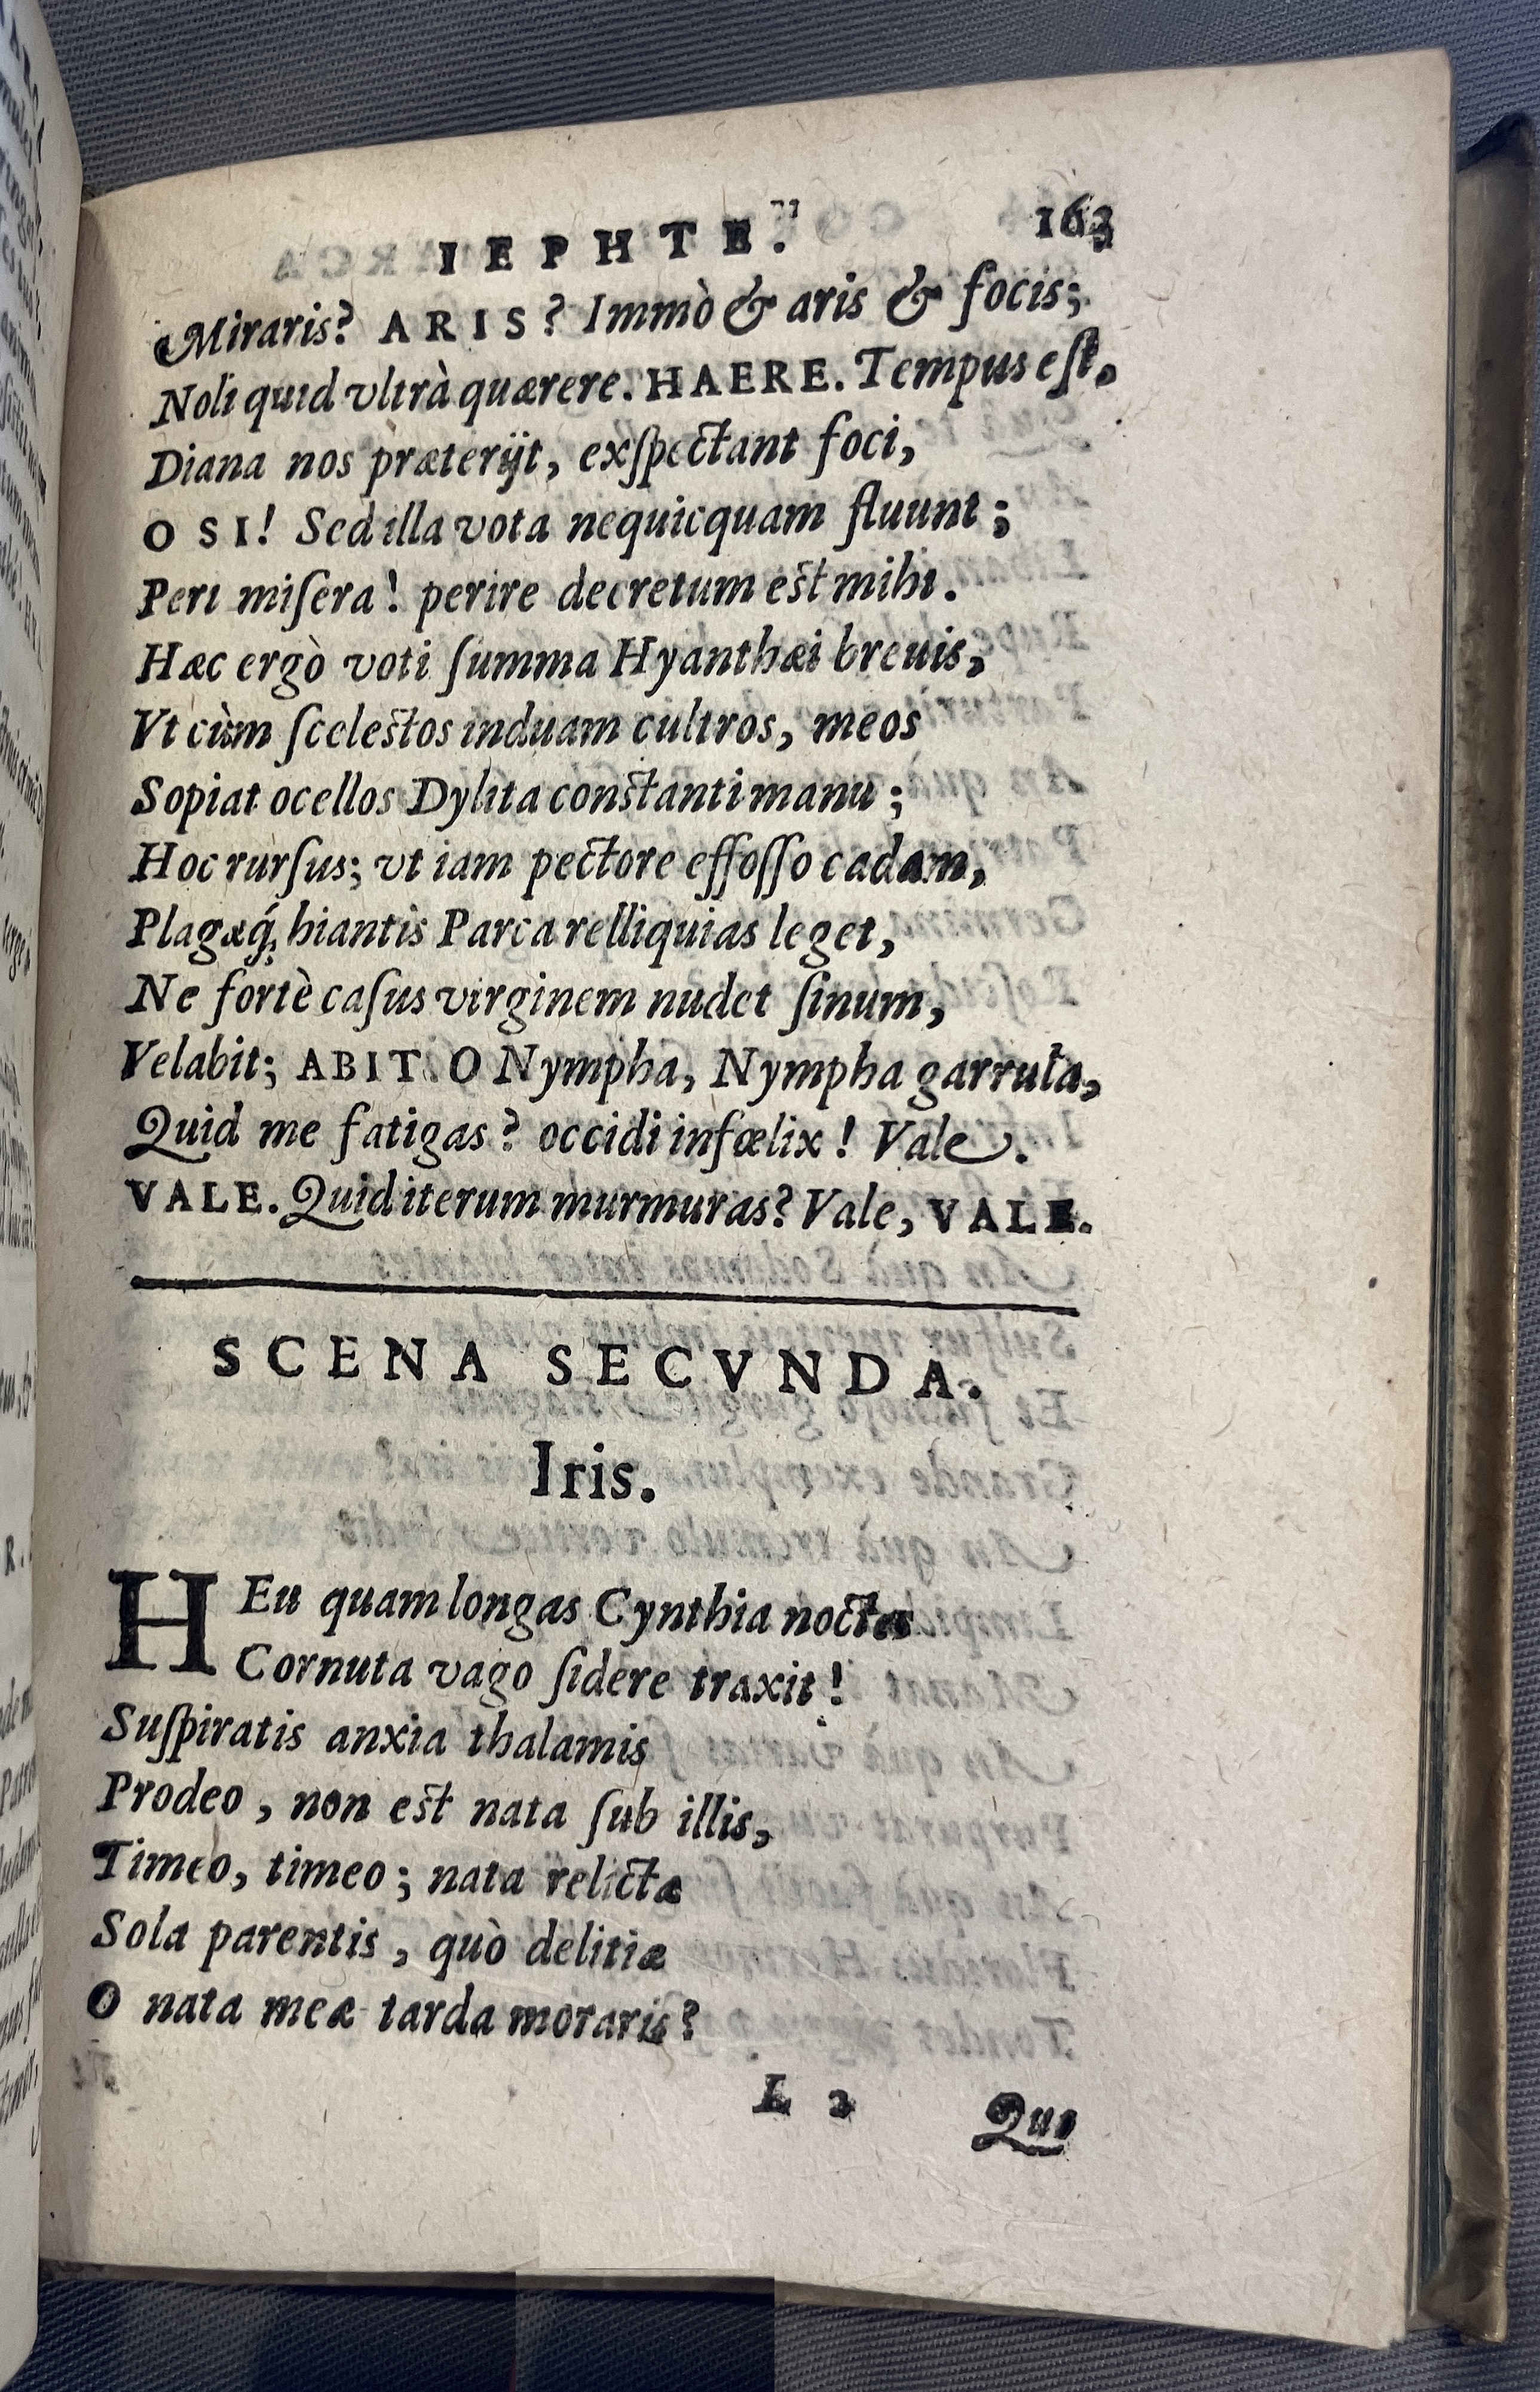 IEPHTE. 163
Miraris? ARIS? Immò & aris & focis;
Noli quid vltrà quærere. HAERE. Tempus eſt.
Diana nos præterijt, exſpectant foci,
O SI! Sed illa vota nequicquam fluunt;
Peri miſera! perire decretum est mihi.
Hæc ergò voti ſumma Hyanthæi breuis,
Vt cùm ſcelestos induam cultros, meos
Sopiat ocellos Dylita constanti manu;
Hoc rurſus; vt iam pectore effoſſo cadam,
Plagæq́; hiantis Parca relliquias leget,
Ne fortè caſus virginem nudet ſinum,
Velabit; ABIT. O Nympha, Nympha garrula,
Quid me fatigas? occidi infœlix! Vale.
VALE. Quid iterum murmuras? Vale, VALE.
SCENA SECVNDA.
Iris.
HEu quam longas Cynthia noctes
Cornuta vago ſidere traxit!
Suſpiratis anxia thalamis
Prodeo, non est nata ſub illis,
Timeo, timeo; nata relictæ
Sola parentis, quò delitiæ
O nata meæ tarda moraris?
L 2 Qui